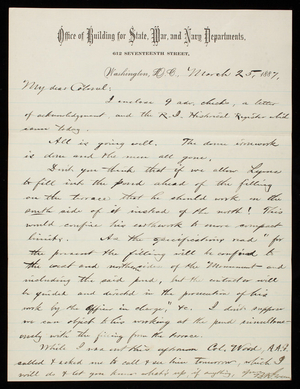 Office of Building for State, War, and Navy Departments,
612 SEVENTEENTH STREET,
Washington, D.C. March 25, 1887.
My dear Colonel:
I enclose 9 adv. checks, a letter
of acknowledgment, and the R.I. Historical Register which
came today.
All is going well. The dome ironwork
is done and the men all gone.
Don't you think that if we allow Lyons
to fill into the pond ahead of the filling
on the terrace that he should work on the
south side of it instead of the north? This
would confine his earthwork to more compact
limits. As the specifications read "for
the present the filling will be confined to
the west and sides of the Monument and
including the said pond, but the contractor will
be guided and directed in the prosecution of his
work by the Officer in charge," &c. I don't suppose
we can object to his working at the pond simultane-
ously with the filling from the terrace.
While I was out this afternoon Col. Wood,
called & asked me to call & see him tomorrow, which I
will do & let you know what's up if anything,